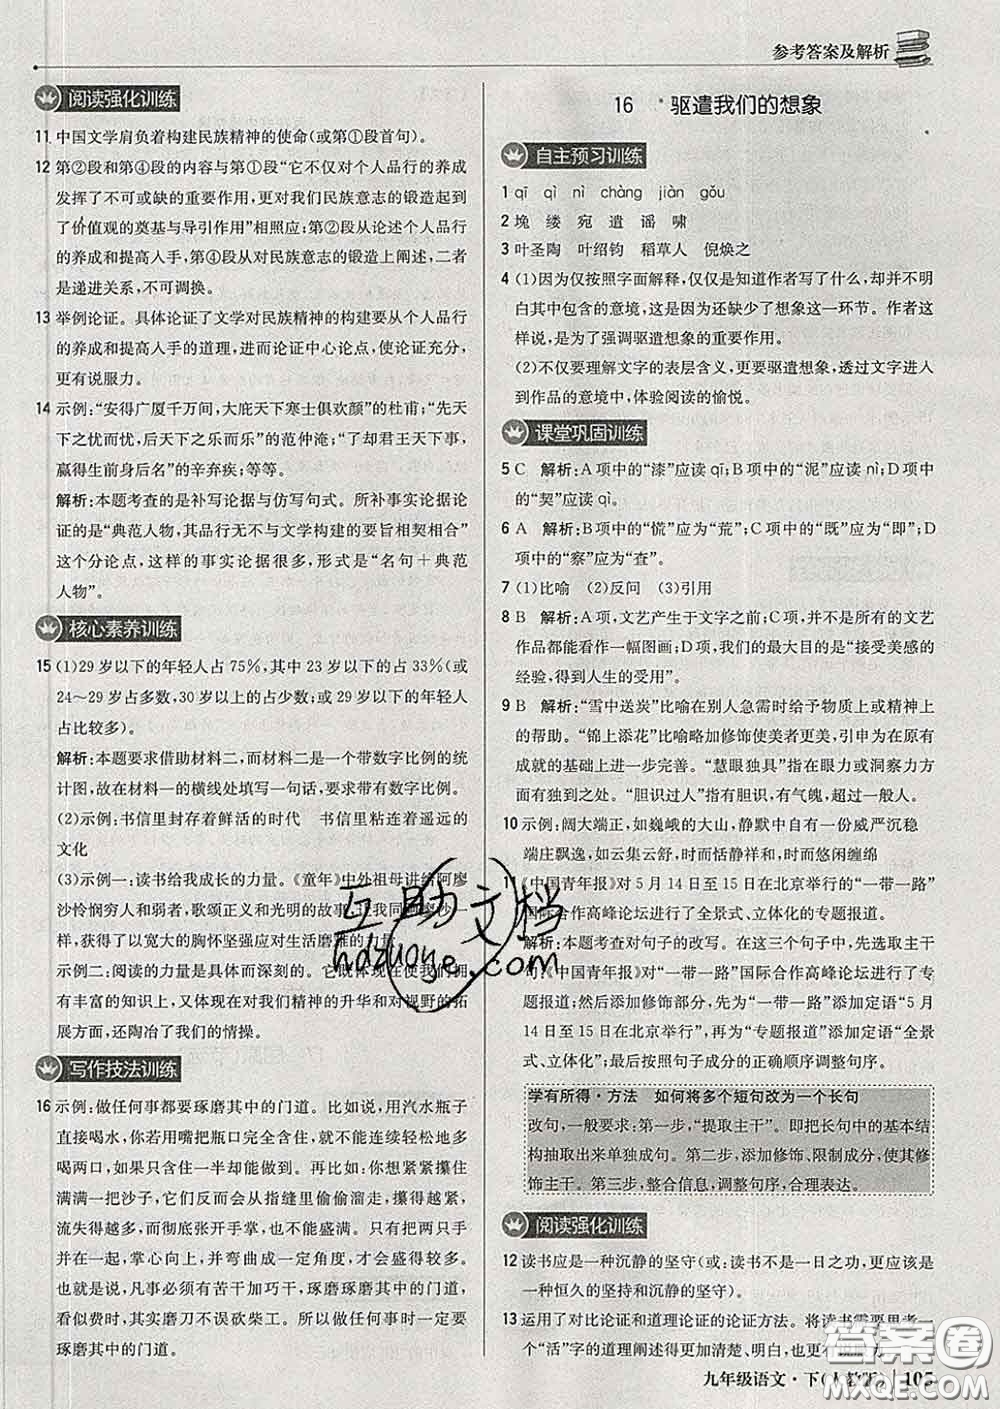 参考答案及解析
阅读强化训练
11 中国文学肩负着构建民族精神的使命(或第①段首句)。
12 第②段和第④段的内容与第①段“它不仅对个人品行的养成
发挥了不可或缺的重要作用,更对我们民族意志的锻造起到
了价值观的奠基与导引作用”相照应;第②段从论述个人品行
的养成和提高入手,第④段从对民族意志的锻造上阐述,二者
是递进关系,不可调换。
13 举例论证。具体论证了文学对民族精神的构建要从个人品行
的养成和提高入手的道理,进而论证中心论点,使论证充分,
更有说服力。
14 示例:“安得广厦千万间,大庇天下寒士俱欢颜”的杜甫;“先天
下之忧而忧,后天下之乐而乐”的范仲淹;“了却君王天下事,
赢得生前身后名”的辛弃疾;等等。
解析:本题考查的是补写论据与仿写句式。所补事实论据论
证的是“典范人物,其品行无不与文学构建的要旨相契相合”
这个分论点,这样的事实论据很多,形式是“名句+典范
人物”。
核心素养训练
15 (1)29岁以下的年轻人占75%,其中23岁以下的占33%(或
24~29岁占多数,30岁以上的占少数;或29岁以下的年轻人
占比较多)。
解析:本题要求借助材料二,而材料二是一个带数字比例的统
计图,故在材料一的横线处填写一句话,要求带有数字比例。
(2)示例:书信里封存着鲜活的时代 书信里粘连着遥远的
文化
(3)示例一:读书给我成长的力量。《童年》中外祖母讲给阿廖
沙怜悯穷人和弱者,歌颂正义和光明的故事,让我同阿廖沙一
样,获得了以宽大的胸怀坚强应对生活磨难的力量。
示例二:阅读的力量是具体而深刻的。它既体现在使我们拥
有丰富的知识上,又体现在对我们精神的升华和对视野的拓
展方面,还陶冶了我们的情操。
写作技法训练
16 示例:做任何事都要琢磨其中的门道。比如说,用汽水瓶子
直接喝水,你若是用嘴把瓶口完全含住,就不能连续轻松地多
喝两口,但如果只含住一半却能做到。再比如,你想紧紧攥住
满满一把沙子,它却总会从指缝里偷偷溜走,攥得越紧,
流失得越多,而彻底张开手掌,也不能盛满。只有把两只手
并在一起,掌心向上,并弯曲成一定角度,才能盛得最多。这
也就是说,凡事必须在苦干加巧干,琢磨琢磨其中的门道,
看似费时,其实磨刀不误砍柴工。所以,做任何事一定要
琢磨其中的门道。
16 驱遣我们的想象
自主预习训练
1 qī qì nì chàng jiàn gǒu
2 堍 缕 宛 遣 谣 啸
3 叶圣陶 叶绍钧 稻草人 倪焕之
4 (1)因为仅按照字面解释,仅仅是知道作者写了什么,却并不明
白其中包含的意境,这是因为还缺少了想象这一环节。作者这
样说,是为了强调驱遣想象的重要作用。
(2)不仅要理解文字的表层含义,更要驱遣想象,透过文字进入
到作品的意境中,体验阅读的愉悦。
课堂巩固训练
5 C 解析:A项中的“漆”应读qī;B项中的“泥”应读nì;D项
中的“契”应读qì。
6 A 解析:B项中的“慌”应为“荒”;C项中的“既”应为“即”;D
项中的“察”应为“查”。
7 (1)比喻 (2)反问 (3)引用
8 B 解析:A项,文艺产生于文字之前;C项,并不是所有的文艺
作品都能看作一幅图画;D项,我们的最大目的是“接受美感的
经验,得到人生的受用”。
9 B 解析:“雪中送炭”比喻在别人急需时给予物质上或精神上
的帮助。“锦上添花”比喻略加修饰使美者更美,引申为在原有
成就的基础上进一步完善。“慧眼独具”指在眼力或洞察力方面
有独到之处。“胆识过人”具有胆量和见识,有气魄,超过一般人。
10 示例:阔大端正,如巍峨的大山,静默中自有一份威严沉稳
端庄飘逸,如云集云舒,时而恬静祥和,时而悠闲缠绵
11 《中国青年报》对5月14日至15日在北京举行的“一带一路”
国际合作高峰论坛进行了全景式、立体化的专题报道。
解析:本题考查对句子的改写。在这三个句子中,先选取主干
句:《中国青年报》对“一带一路”国际合作高峰论坛进行了专题
报道;然后添加修饰部分,先为“一带一路”添加定语“5月
14日至15日在北京举行”,再为“专题报道”添加定语“全景
式、立体化”;最后按照句子成分的正确顺序调整句序。
学有所得·方法 如何将多个短句改为一个长句
改句,一般要求:第一步,“提取主干”。即把长句中的基本结
构抽取出来单独成句。第二步,添加修饰、限制成分,使其修
饰主干。第三步,整合信息,调整句序,合理表达。
阅读强化训练
12 读书应是一种沉静的坚守(或:读书不是一日之功,更应该是
一种恒久的坚持和沉静的坚守)。
13 运用了对比论证和道理论证的论证方法。将读书需要思考一
个“活”字的道理阐述得更加清楚、明白,也更有说服力。
九年级语文·下(人教版) 105
互助文档
hdzuoye.com
答案圈
MXQE.COM